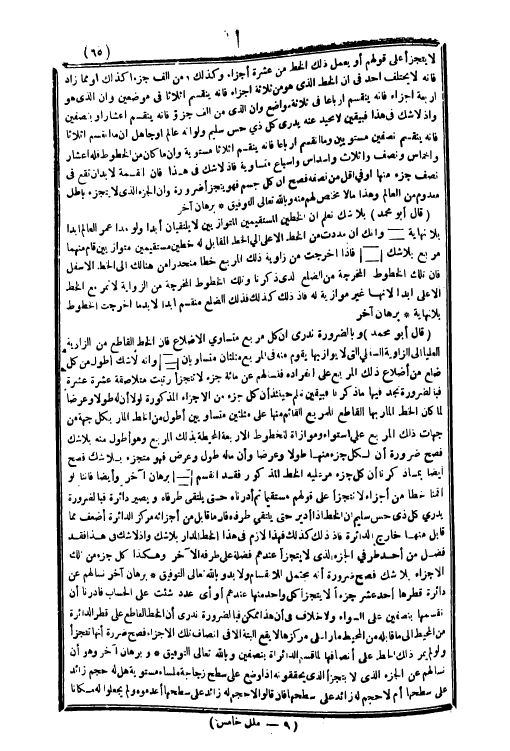 (٦٥)
لا يتجزأ على قولهم أو يعمل ذلك الخط من عشرة أجزاء وكذلك من الف جزء كذلك او مما زاد
فانه لا يختلف احد فى ان الخط الذى هو من ثلاثة اجزاء فانه ينقسم اثلاثا فى موضعين وان الذى هو
اربعة اجزاء فانه ينقسم ارباعا فى ثلاثة مواضع وان الذى من الف جزؤ فانه ينقسم اعشارا وبنصفين
واذ لاشك فى هذا فبيقين لا محيد عنه يدرى كل ذي حس سليم ولو انه عالم او جاهل ان ما انقسم اثلاثا
فانه ينقسم نصفين مستويين وما انقسم ارباعا فانه ينقسم اثلاثا مستوية وان ما كان من الخطوط فله اعشار
واخماس ونصف واثلاث واسداس واسباع متساوية فاذ لاشك فى هذا فان القسمة لا بد ان تقع فى
نصف جزء منها او فى اقل من نصفه فصح ان كل جسم فهو يتجزأ ضرورة وان الجزء الذى لا يتجزء باطل
معدوم من العالم وهذا مالا مخلص لهم منه وبالله تعالى التوفيق * برهان آخر
(قال أبو محمد) بلا شك نعلم ان الخطين المستقيمين المتوازيين لا يلتقيان أبدا ولو مدا عمر العالم ابدا
بلا نهاية وانك ان مددت من الخط الاعلى الى الخط المقابل له خطين مستقيمين متوازيين قام منهما
مربع بلا شك فاذا اخرجت من زاوية ذلك المربع خطا منحدرا من هنالك الى الخط الاسفل
فان تلك الخطوط المخرجة من الضلع الذى ذكرنا وتلك الخطوط المخرجة من الزاوية لا تمر مع الخط
الاعلى ابدا لانها غير موازية له فاذ ذلك كذلك فذلك الضلع منقسم ابدا لا بد ما اخرجت الخطوط
بلا نهاية * برهان آخر
(قال أبو محمد) وبالضرورة ندرى ان كل مربع متساوي الاضلاع فان الخط القاطع من الزاوية
العليا الى الزاوية السفلى التى لا يوازيها يقوم منه فى المربع مثلثان متساويان وانه لاشك أطول من كل
ضلع من أضلاع ذلك المربع على انفراده فنسألهم عن مائة جزء لا تتجزأ رتبت متلاصقة عشرة عشرة
فبالضرورة نجد فيها ما ذكرنا فبيقين نعلم حينئذ أن كل جزء من الاجزاء المذكورة لولا أن له طولا وعرضا
لما كان الخط المار بها القاطع للمربع القائم منها على مثلثين متساويين أطول من الخط المار بكل جهة من
جهات ذلك المربع على استواء وموازاة للخطوط الاربعة المحيطة بذلك المربع وهو أطول منه بلا شك
فصح ضرورة أن لكل جزء منها طولا وعرضا وأن ماله طول وعرض فهو متجزء بلا شك فصح
أيضا بما ذكرنا أن كل جزء مر عليه الخط المذكور فقد انقسم برهان آخر وأيضا فاننا لو
اقمنا خطا من أجزاء لا تتجزأ على قولهم مستقيما ثم أدرناه حتى يلتقى طرفاه ويصير دائرة فبالضرورة
يدرى كل ذى حس سليم ان الخط اذا أدير حتى يلتقي طرفه فان ما قابل من أجزائه مركز الدائرة أضعف مما
قابل منها خارج الدائرة فاذ ذلك كذلك فهذا لازم فى هذا الخط المدار بلا شك واذ لاشك فى هذا فقد
فضل من أحد طرفى الجزء الذى لا يتجزأ عندهم فضلة على طرفه الآخر وهكذا كل جزء من تلك
الاجزاء بلا شك فصح ضرورة أنه محتمل الانقسام ولا بد وبالله تعالى التوفيق * برهان آخر نسألهم عن
دائرة قطرها أحد عشر جزءأ لا يتجزأ كل واحد منها عندهم أو أى عدد شئت على الحساب فأردنا أن
نقسمها بنصفين على السواء ولا خلاف فى أن هذا ممكن فبالضرورة ندرى أن الخط القاطع على قطر الدائرة
من المحيط الى ما قابله من المحيط مارا على مركزها لا يقع البتة الا فى انصاف تلك الاجزاء فصح ضرورة أنها تتجزأ
ولو لم يمر ذلك الخط على أنصافها لما قسم الدائرة بنصفين وبالله تعالى التوفيق * وبرهان آخر وهو أن
نسألهم عن الجزء الذى لا يتجزأ الذى يحققونه اذا وضع على سطح زجاجة ملساء مستوية هل له حجم زائد
على سطحها أم لا حجم له زائد على سطحها فان قالوا لا حجم له زائد على سطحها أعدموه ولم يجعلوا له مكانا
(٩ — ملل خامس)